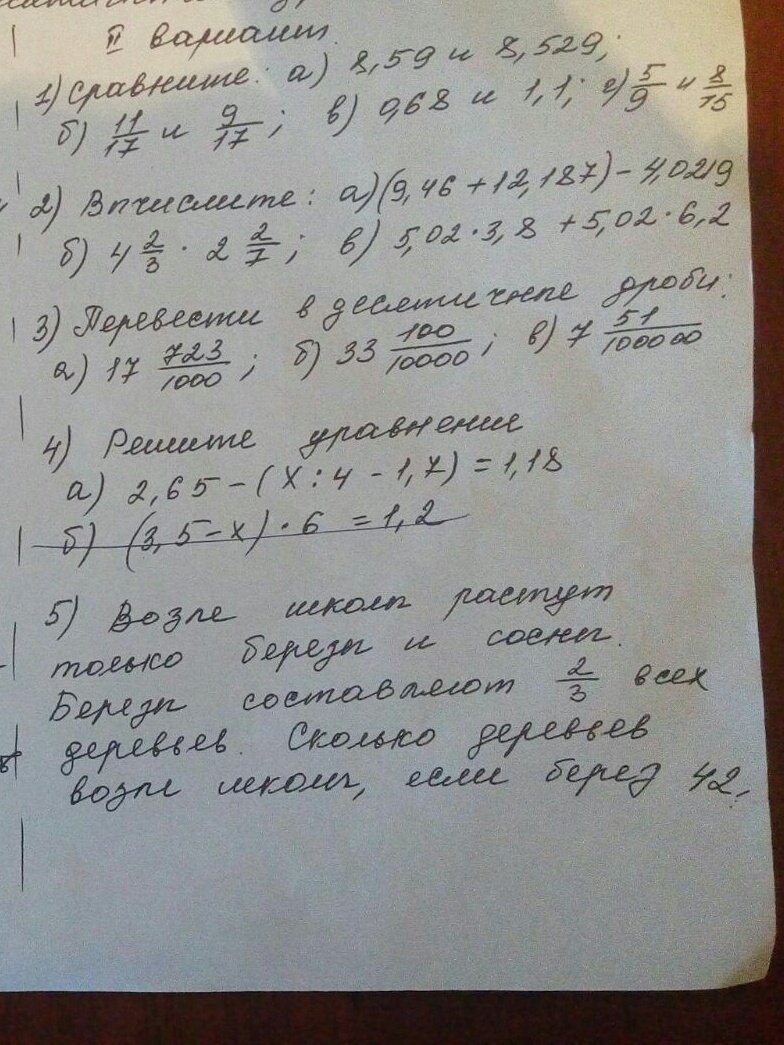 II вариант.
1) Сравните: а) 8,59 и 8,529;
б) 11/17 и 9/17; в) 0,68 и 1,1; г) 5/9 и 8/15
2) Вычислите: а) (9,46 + 12,187) - 4,0219
б) 4 2/3 · 2 2/7; в) 5,02 · 3,8 + 5,02 · 6,2
3) Перевести в десятичные дроби:
а) 17 723/1000; б) 33 100/10000; в) 7 51/100000
4) Решите уравнение
а) 2,65 - (х : 4 - 1,7) = 1,18
б) (3,5 - х) · 6 = 1,2
5) Возле школы растут
только березы и сосны.
Березы составляют 2/3 всех
деревьев. Сколько деревьев
возле школы, если берез 42.